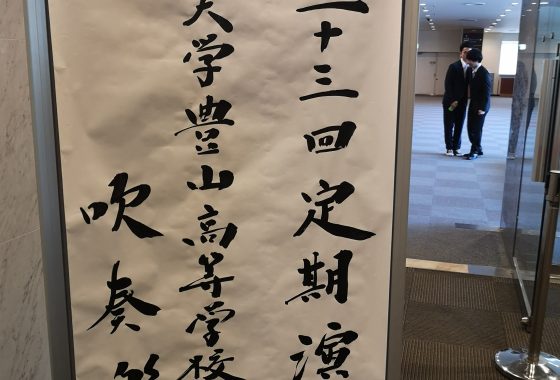 十三回定期演
大学豊山高等学校
吹奏